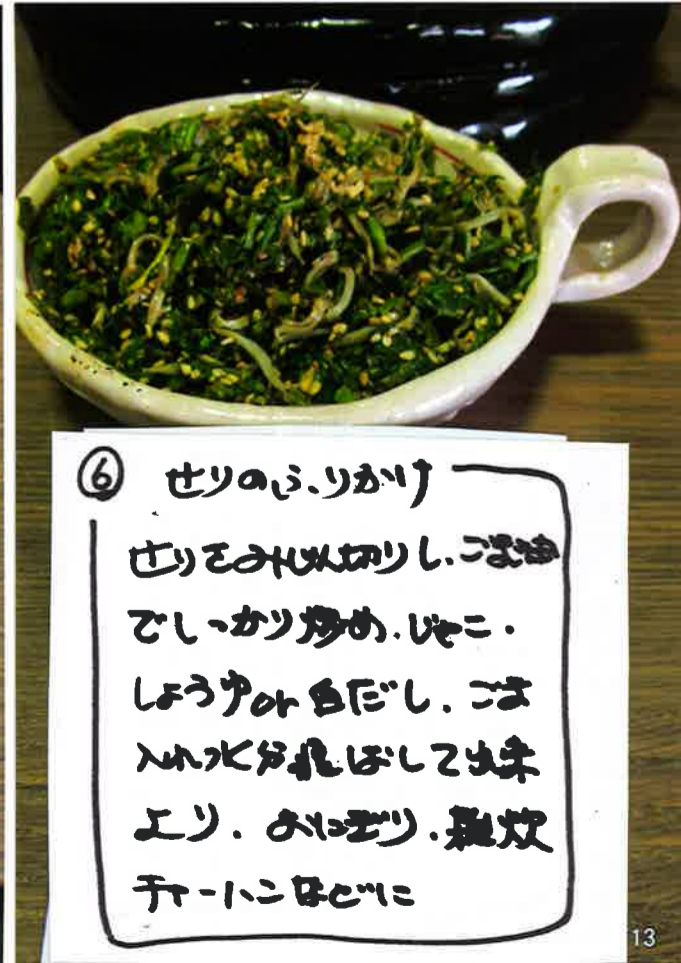 ⑥ せりのふりかけ
せりをみじん切りし、ごま油
でしっかり炒め、じゃこ・
しょうゆor白だし、ごま
入れ水分飛ばして出来
より、おにぎり、雑炊
チャーハンなどに
13